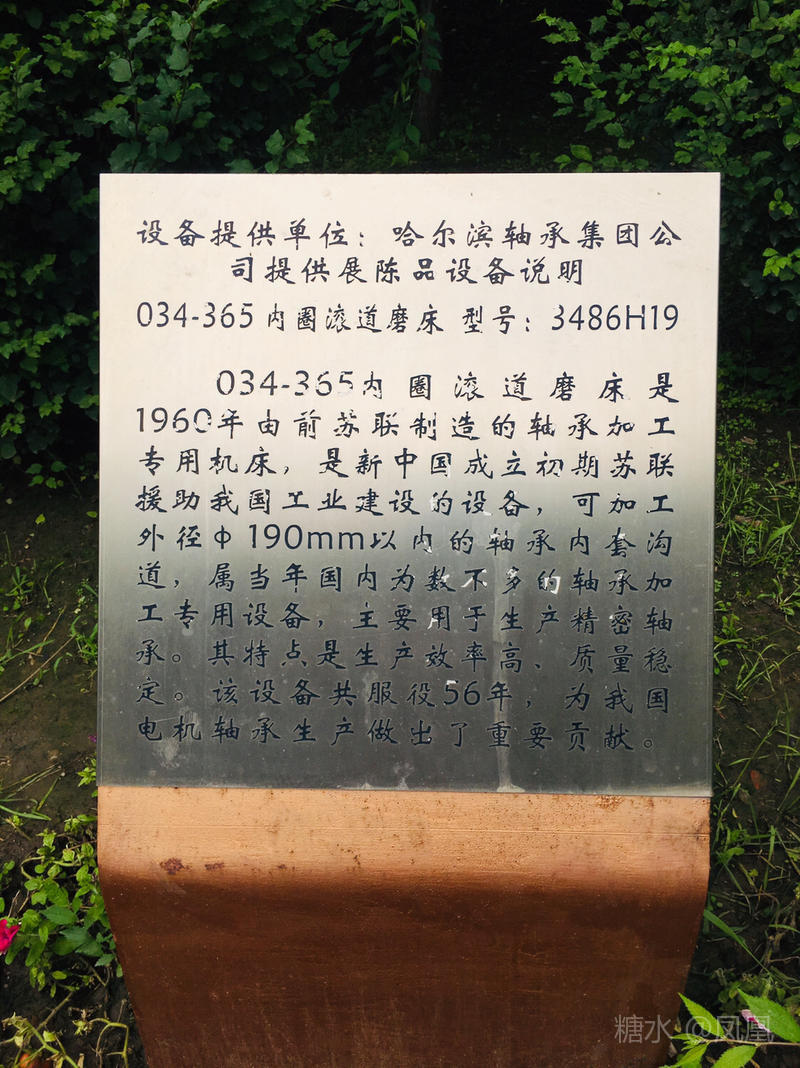 设备提供单位：哈尔滨轴承集团公
司提供展陈品设备说明
034-365内圈滚道磨床 型号：3486H19
034-365内圈滚道磨床是
1960年由前苏联制造的轴承加工
专用机床，是新中国成立初期苏联
援助我国工业建设的设备，可加工
外径φ190mm以内的轴承内套沟
道，属当年国内为数不多的轴承加
工专用设备，主要用于生产精密轴
承。其特点是生产效率高、质量稳
定。该设备共服役56年，为我国
电机轴承生产做出了重要贡献。
糖水 @凤凰